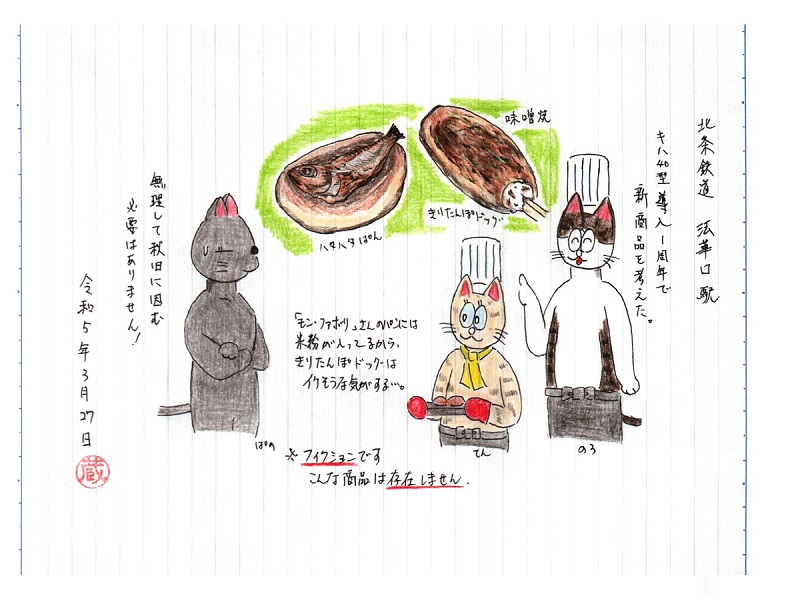 北条鉄道 法華口駅
キハ40型導入1周年で
新商品を考えた。
味噌焼
きりたんぽドッグ
ハタハタぱん
無理して秋田に因む
必要はありません!
「モン・ファボリ」さんのパンには
米粉が入ってるから、
きりたんぽドッグは
イケそうな気がする…。
ぱの
てん
のろ
※フィクションです
こんな商品は存在しません.
令和5年3月27日
蔵